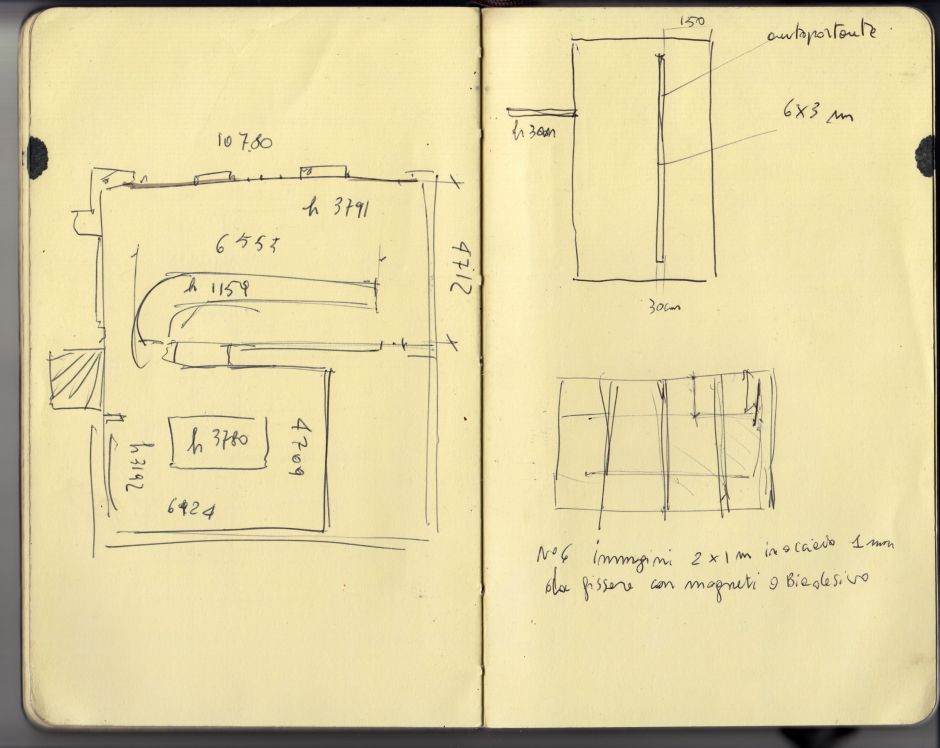 10780
h 3791
6553
4712
h 1159
h 3780
4709
h 3192
6924
150
autoportante
6x3 m
h 30cm
30cm
N°6 immagini 2x1 m in acciaio 1 mm
da fissare con magneti o Biadesivo